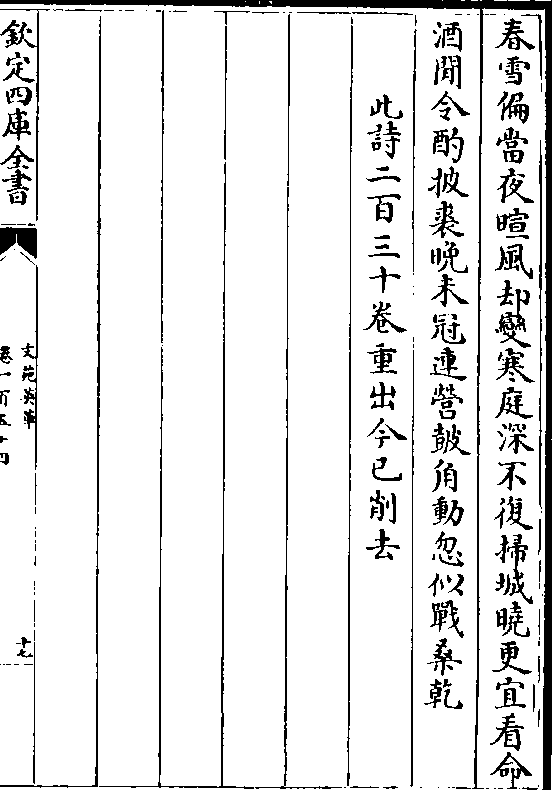 春雪偏當夜暄風却變寒庭深不復掃城曉更宜看命
酒閒令酌披裘晚未冠連營鼓角動忽似戰桑乾
此詩二百三十卷重出今已削去
欽定四庫全書
文苑英華
卷一百五十四
十七